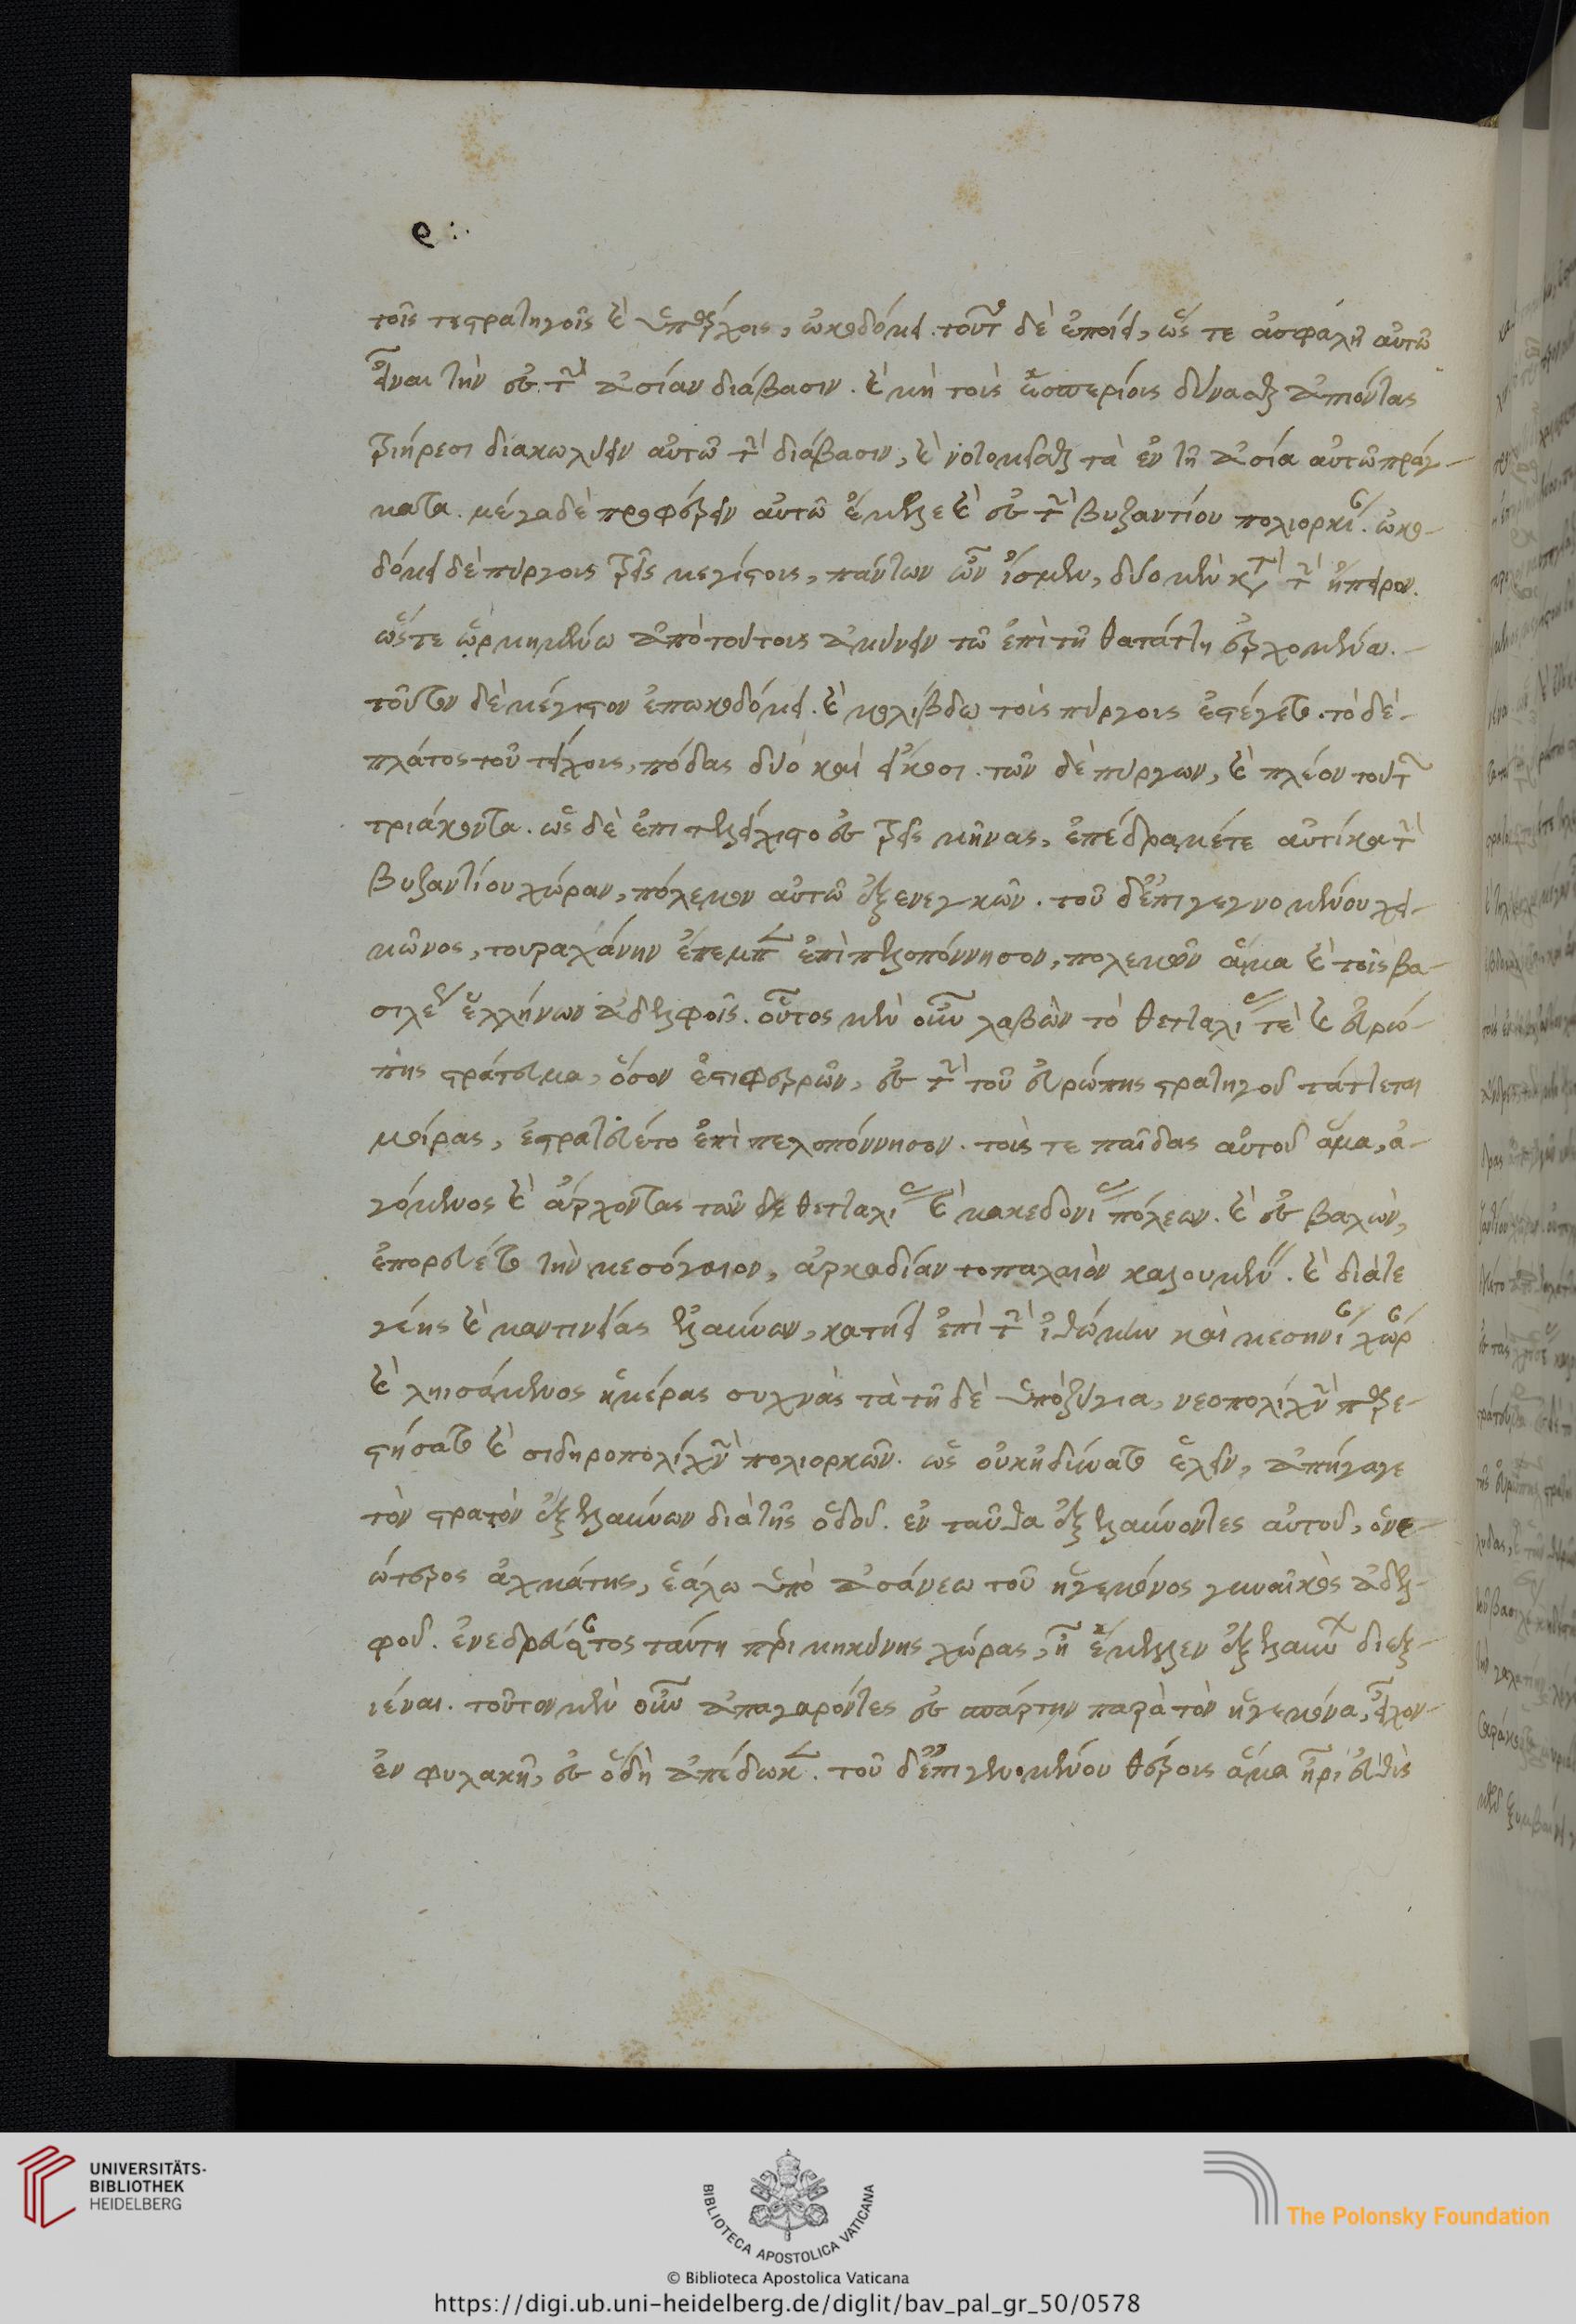 ρ:
τοῖς τε στρατηγοῖς καὶ ὑπάρχοις, ὠκοδόμει. τοῦτο δὲ ἐποίει, ὥς τε ἀσφαλῆ αὐτῷ
εἶναι τὴν ἐς τὴν ἀσίαν διάβασιν. καὶ μὴ τοὺς ἑσπερίους δύνασθαι ἀπιόντας
τριήρεσι διακωλύειν αὐτῷ τὴν διάβασιν, καὶ τὰ ἐν τῇ ἀσίᾳ αὐτῷ πράγ-
ματα. μέγα δὲ προφέρειν αὐτῷ ἔμελλε καὶ ἐς τὴν βυζαντίου πολιορκίαν. ὠκο-
δόμει δὲ πύργους τρεῖς μεγίστους, πάντων ὧν ἴσμεν, δύο μὲν κατὰ τὴν ἤπειρον.
ὥστε ὁρμημένῳ ἀπὸ τούτους ἀμύνειν τῷ ἐπὶ τῇ θαλάττῃ ἐρχομένῳ.
τοῦτον δὲ μέγιστον ἐπωκοδόμει. καὶ μολίβδῳ τοὺς πύργους ἐστέγασε. τὸ δὲ
πλάτος τοῦ τείχους, πόδας δύο καὶ εἴκοσι. τῶν δὲ πύργων, καὶ πλέον τούτων
τριάκοντα. ὡς δὲ ἐπιτετείχιστο ἐς τρεῖς μῆνας, ἐπέδραμέ τε αὐτίκα τὴν
βυζαντίου χώραν, πόλεμον αὐτῷ ἐξενεγκών. τοῦ δ' ἐπιγεγνομένου χει-
μῶνος, τουραχάνην ἔπεμπεν ἐπὶ πελοπόννησον, πολεμεῖν ἅμα καὶ τοῖς βα-
σιλέως ἑλλήνων ἀδελφοῖς. οὗτος μὲν οὖν λαβὼν τὸ θετταλίας τὲ καὶ εὐρώ-
πης στράτευμα, ὅσον ἐστι φερῶν, ἐς τὴν τοῦ εὐρώπης στρατηγοῦ τάττεται
μοίρας, ἐστρατεύετο ἐπὶ πελοπόννησον. τοὺς τε παῖδας αὐτοῦ ἅμα, ἀ-
γόμενος καὶ ἄρχοντας τῶν δε θετταλίας καὶ μακεδονίας πόλεων. καὶ ἐς βαλὼν,
ἐπορεύετο τὴν μεσόγαιον, ἀρκαδίαν τοπαλαιὸν καλουμένην. καὶ διά τε
γέης καὶ μαντινείας ἐλαύνων, κατῄει ἐπὶ τὴν ἰθώμην καὶ μεσηνίας χώραν
καὶ ληισάμενος ἡμέρας συχνὰς τὰ τῇ δὲ ὑποζύγια, νεοπολίχνην παρε-
στήσατο καὶ σιδηροπολίχνην πολιορκῶν. ὡς οὐκ ἠδύνατο ἑλεῖν, ἀπήγαγε
τὸν στρατὸν ἐξελαύνων διὰ τῆς ὁδοῦ. ἐν ταῦθα ἐξελαύνοντες αὐτοῦ, ὁ νε-
ώτερος ἀχμάτης, ἑάλω ὑπὸ ἀσάνεω τοῦ ἡγεμόνος γυναικὸς ἀδελ-
φοῦ. ἐνεδρεύσαντος ταύτῃ περὶ μηκύνης χώρας, ᾗ ἔμελλεν ἐξελαύνων διεξ-
ιέναι. τοῦτον μὲν οὖν ἀπαγαγόντες ἐς σπάρτην παρὰ τὸν ἡγεμόνα, εἶχον
ἐν φυλακῇ, ἐς ὃ δὴ ἀπέδωκεν. τοῦ δ' ἐπιγενομένου θέρους ἅμα ἦρι εὐθὺς
UNIVERSITÄTS-
BIBLIOTHEK
HEIDELBERG
BIBLIOTECA APOSTOLICA VATICANA
The Polonsky Foundation
© Biblioteca Apostolica Vaticana
https://digi.ub.uni-heidelberg.de/diglit/bav_pal_gr_50/0578